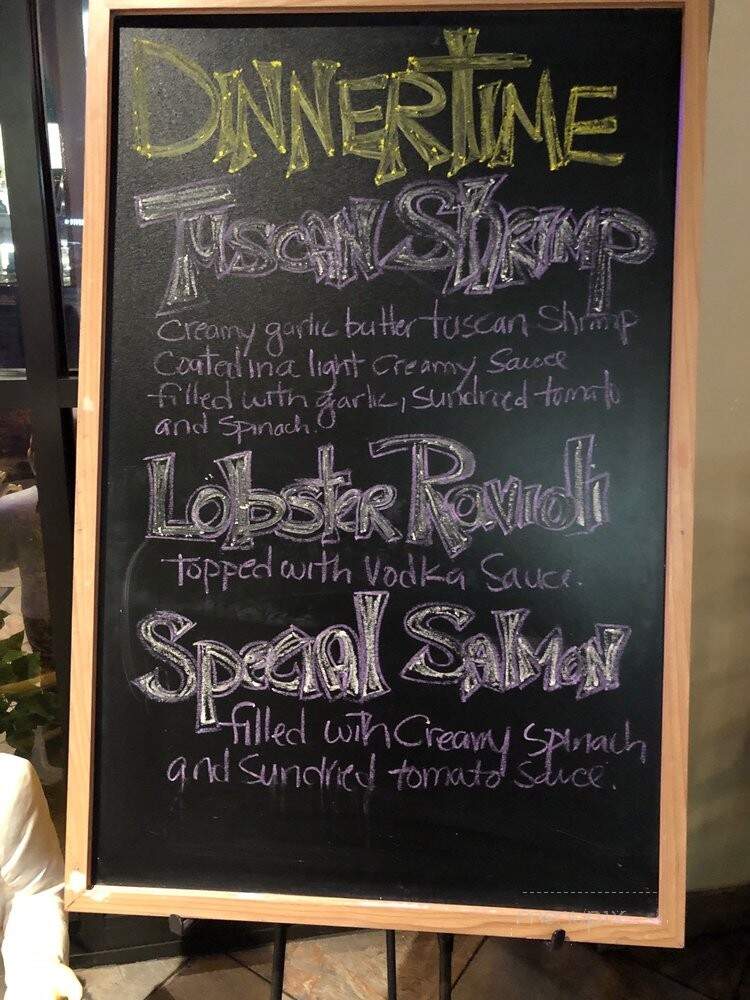 DINNERTIME
TUSCAN SHRIMP
Creamy garlic butter tuscan Shrimp
Coated in a light Creamy Sauce
filled with garlic, Sundried tomato
and Spinach.
Lobster Ravioli
topped with Vodka Sauce.
Special Salmon
filled with Creamy Spinach
and Sundried tomato Sauce.